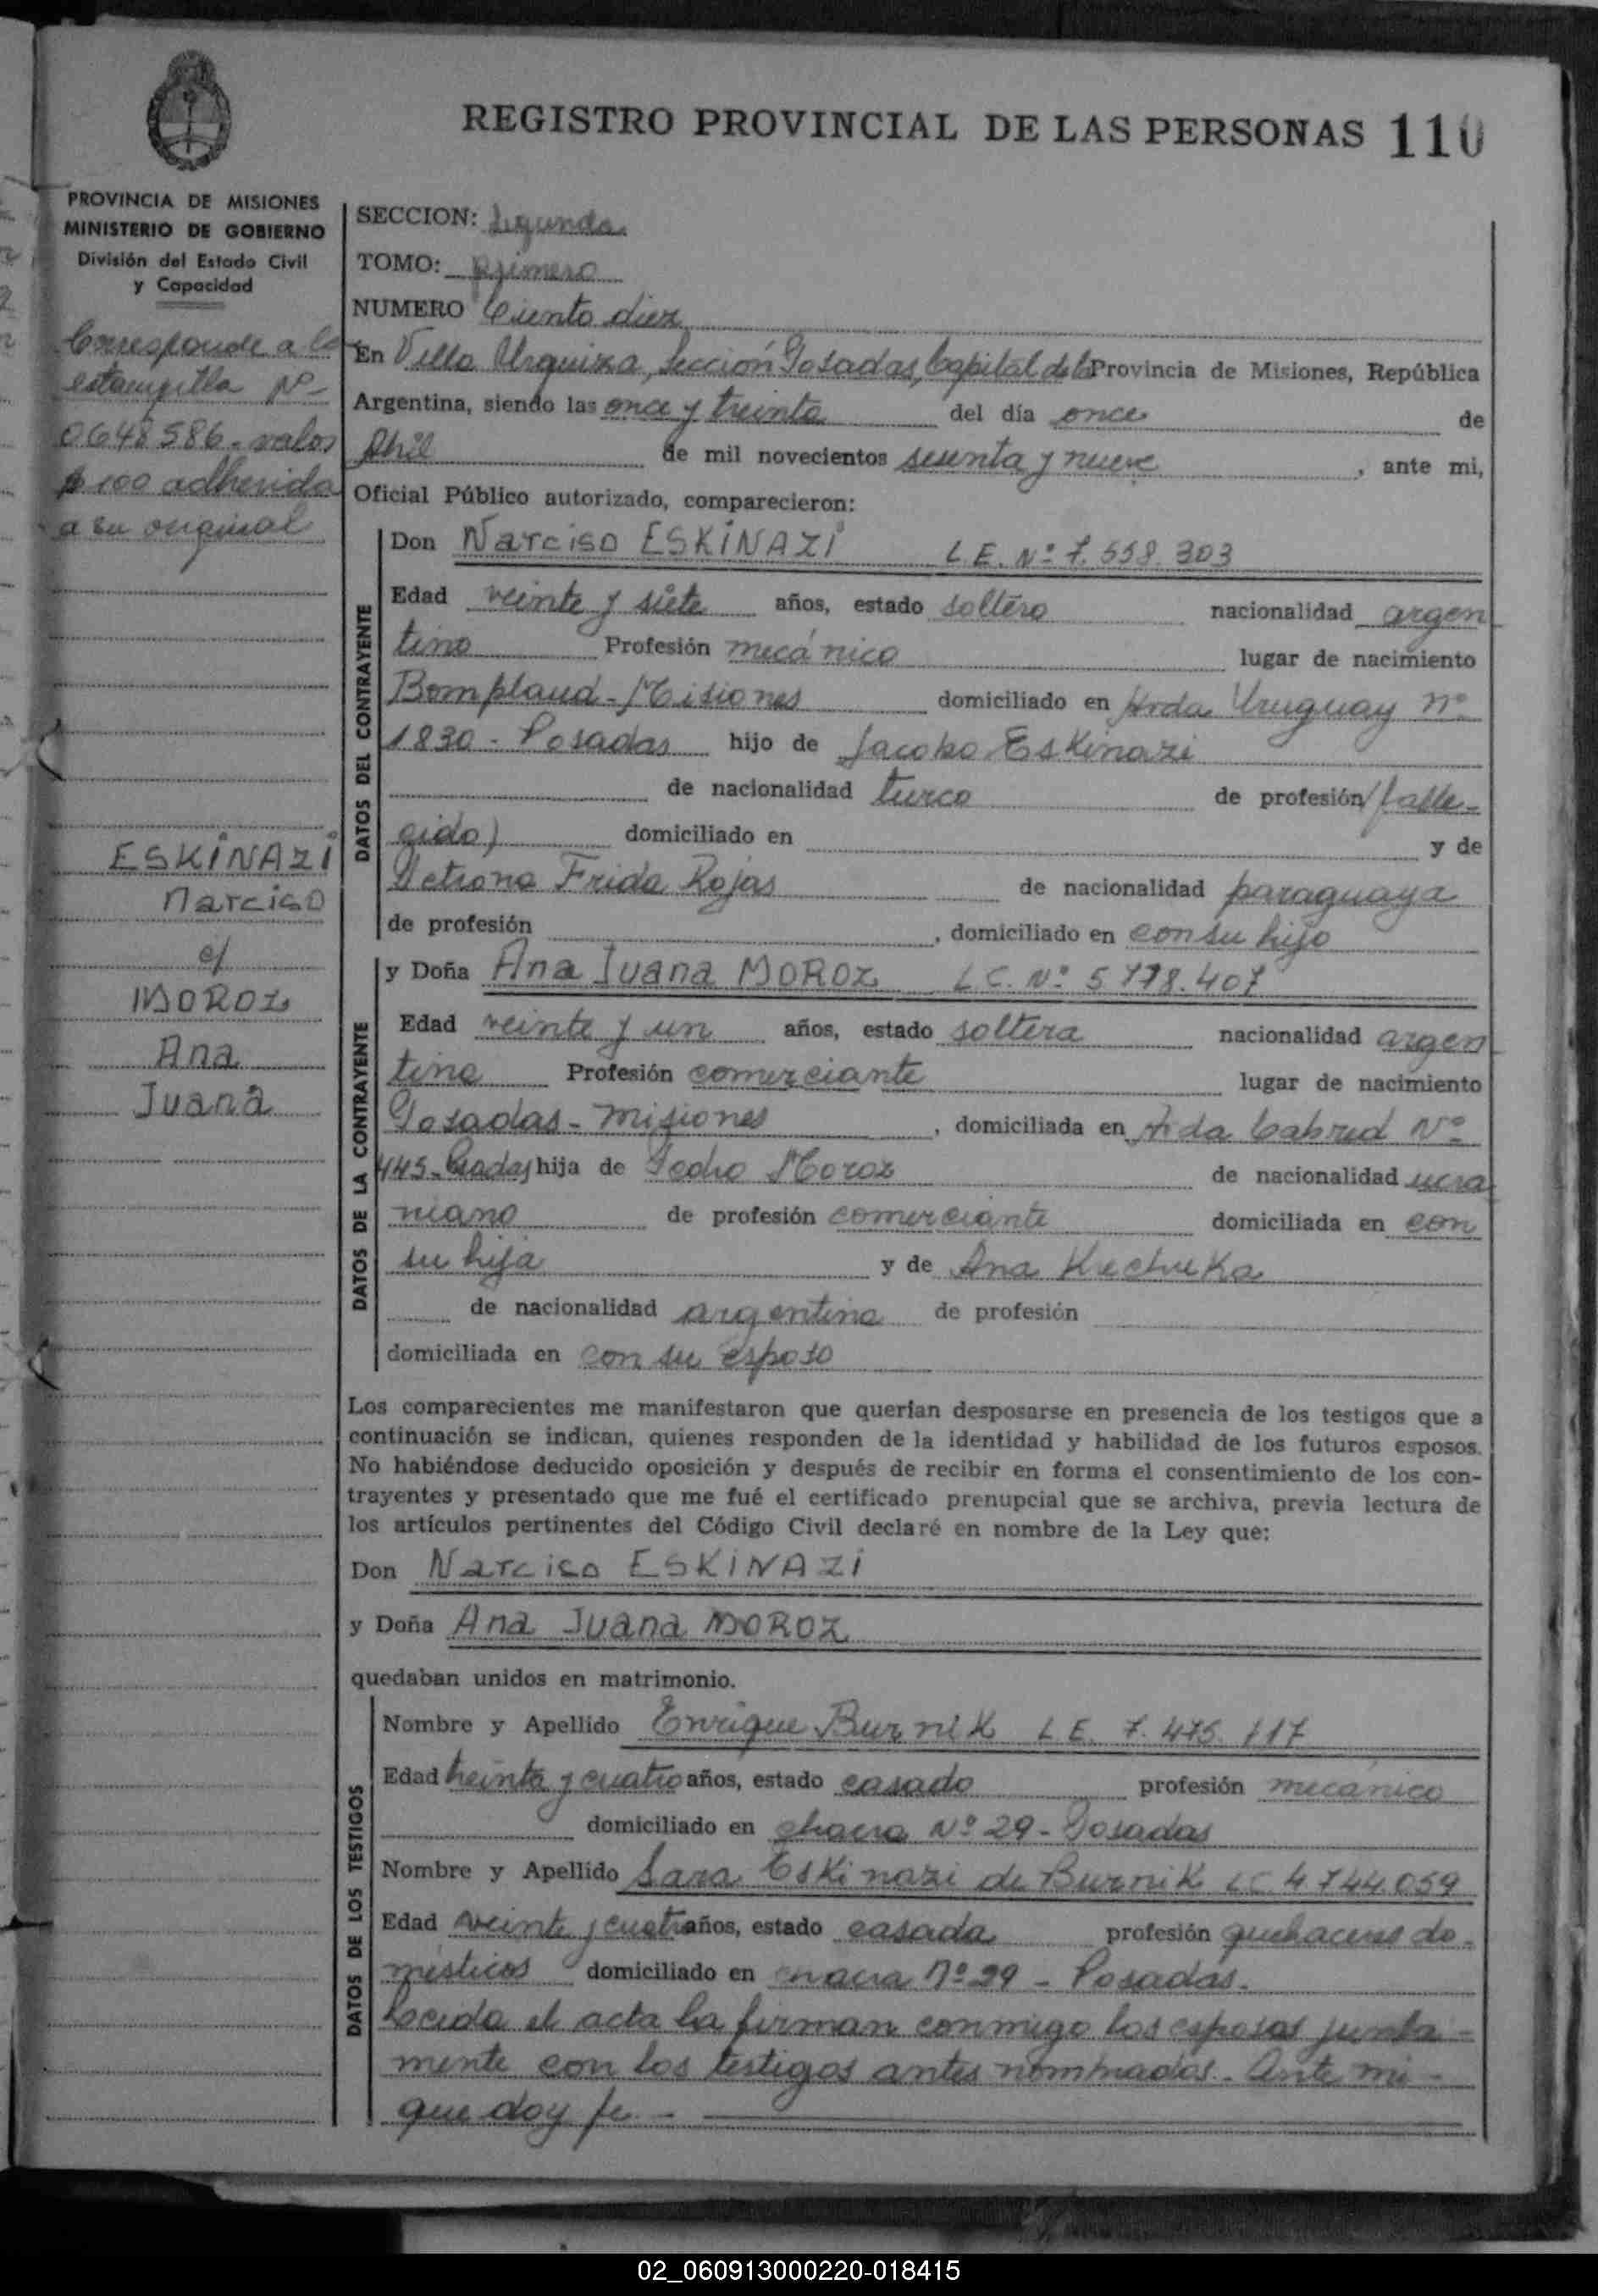 REGISTRO PROVINCIAL DE LAS PERSONAS 110
PROVINCIA DE MISIONES
MINISTERIO DE GOBIERNO
División del Estado Civil
y Capacidad
Corresponde a la
estampilla Nº
0648586- valor
$ 100 adherida
a su original
ESKINAZI
Narciso
c/
MOROZ
Ana
Juana
SECCION: Segunda
TOMO: Primero
NUMERO Ciento diez
En Villa Urquiza, Sección Posadas, Capital de la Provincia de Misiones, República
Argentina, siendo las once y treinta del día once de
Abril de mil novecientos sesenta y nueve, ante mi,
Oficial Público autorizado, comparecieron:
DATOS DEL CONTRAYENTE
Don Narciso ESKINAZI L.E. Nº 7.558.303
Edad veinte y siete años, estado soltero nacionalidad argen
tino Profesión mecánico lugar de nacimiento
Bompland - Misiones domiciliado en Avda Uruguay nº
1830 - Posadas hijo de Jacobo Eskinazi
de nacionalidad turco de profesión (falle-
cido) domiciliado en y de
Petrona Frida Rojas de nacionalidad paraguaya
de profesión , domiciliado en con su hijo
DATOS DE LA CONTRAYENTE
y Doña Ana Juana MOROZ L.C. Nº 5.778.407
Edad veinte y un años, estado soltera nacionalidad argen
tina Profesión comerciante lugar de nacimiento
Posadas - Misiones, domiciliada en Avda Cabred Nº
445- Posadas hija de Pedro Moroz de nacionalidad ucra
niano de profesión comerciante domiciliada en con
su hija y de Ana
de nacionalidad argentina de profesión
domiciliada en con su esposo
Los comparecientes me manifestaron que querían desposarse en presencia de los testigos que a
continuación se indican, quienes responden de la identidad y habilidad de los futuros esposos.
No habiéndose deducido oposición y después de recibir en forma el consentimiento de los con-
trayentes y presentado que me fué el certificado prenupcial que se archiva, previa lectura de
los artículos pertinentes del Código Civil declaré en nombre de la Ley que:
Don Narciso ESKINAZI
y Doña Ana Juana MOROZ
quedaban unidos en matrimonio.
DATOS DE LOS TESTIGOS
Nombre y Apellido Enrique Burnik L E. 7.475.117
Edad treinta y cuatro años, estado casado profesión mecánico
domiciliado en chacra Nº 29 - Posadas
Nombre y Apellido Sara Eskinazi de Burnik LC 4.744.059
Edad veinte y cuatro años, estado casada profesión quehaceres do-
mésticos domiciliado en chacra Nº 29 - Posadas.
Leída el acta la firman conmigo los esposos junta-
mente con los testigos antes nombrados. Ante mi
que doy fe.-
02_060913000220-018415